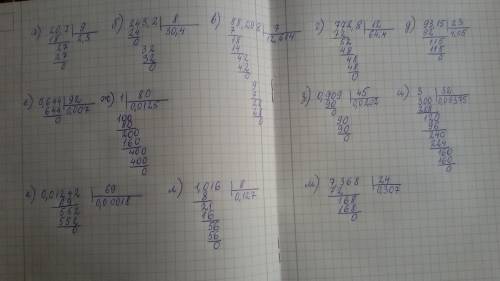 а) 20,7 | 9 б) 243,2 | 8 в) 88,298 | 7 г) 772,8 | 12 д) 93,15 | 23
18 2,3 24 30,4 7 12,614 72 64,4 92 4,05
27 32 18 52 115
27 32 14 48 115
0 0 42 48 0
42 48
0 0
е) 0,644 | 92 ж) 1 | 80 з) 0,909 | 45 и) 3 | 32
644 0,007 0,0125 90 0,0202 300 0,09375
0 100 90 288
80 90 120
200 0 96
160 240
400 224
400 160
0 160
0
9
7
28
28
0
к) 0,01242 | 69 л) 1,016 | 8 м) 7,368 | 24
69 0,00018 8 0,127 72 0,307
552 21 168
552 16 168
0 56 0
56
0